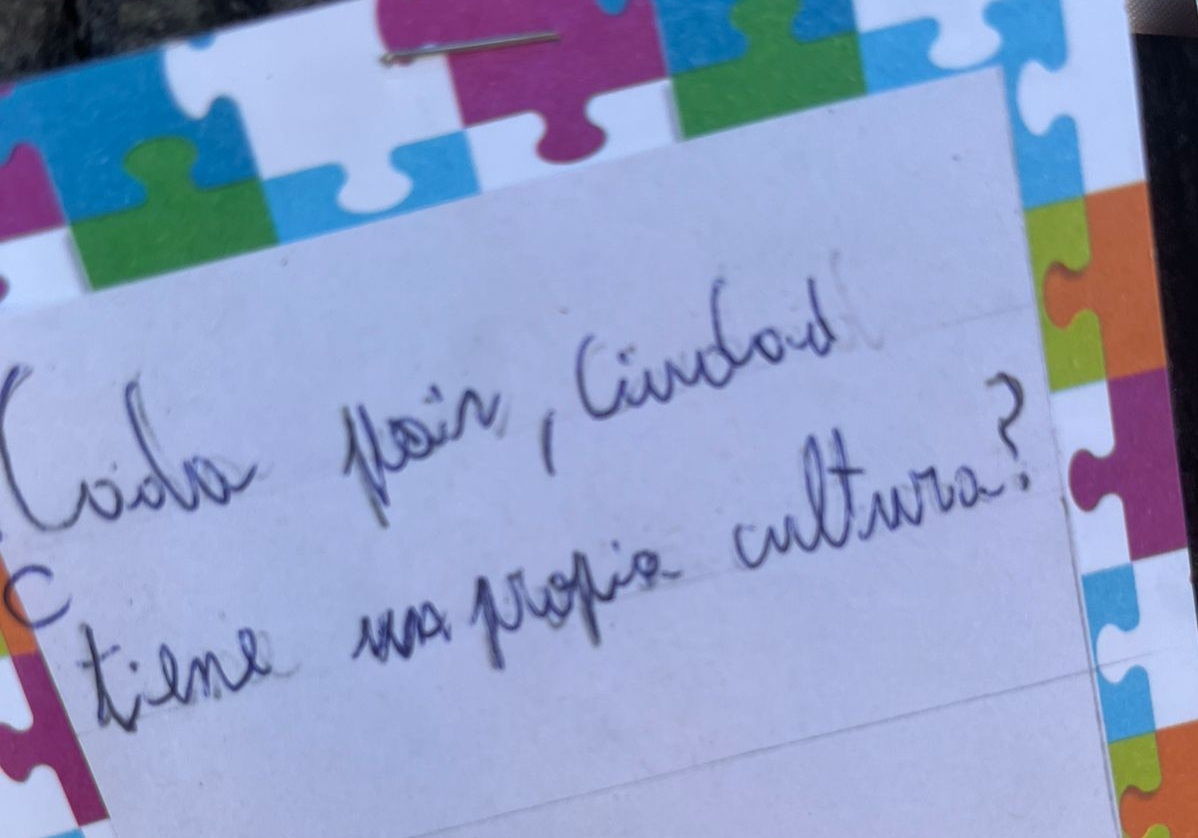 Cada pais, Ciudad
C
tiene una propia cultura?